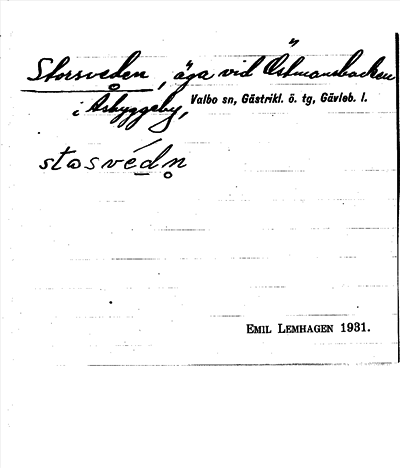 Storsveden, äga vid Östmansbacken
i Åsbyggeby, Valbo sn, Gästrikl. ö. tg, Gävleb. l.
stosvédn̥
EMIL LEMHAGEN 1931.